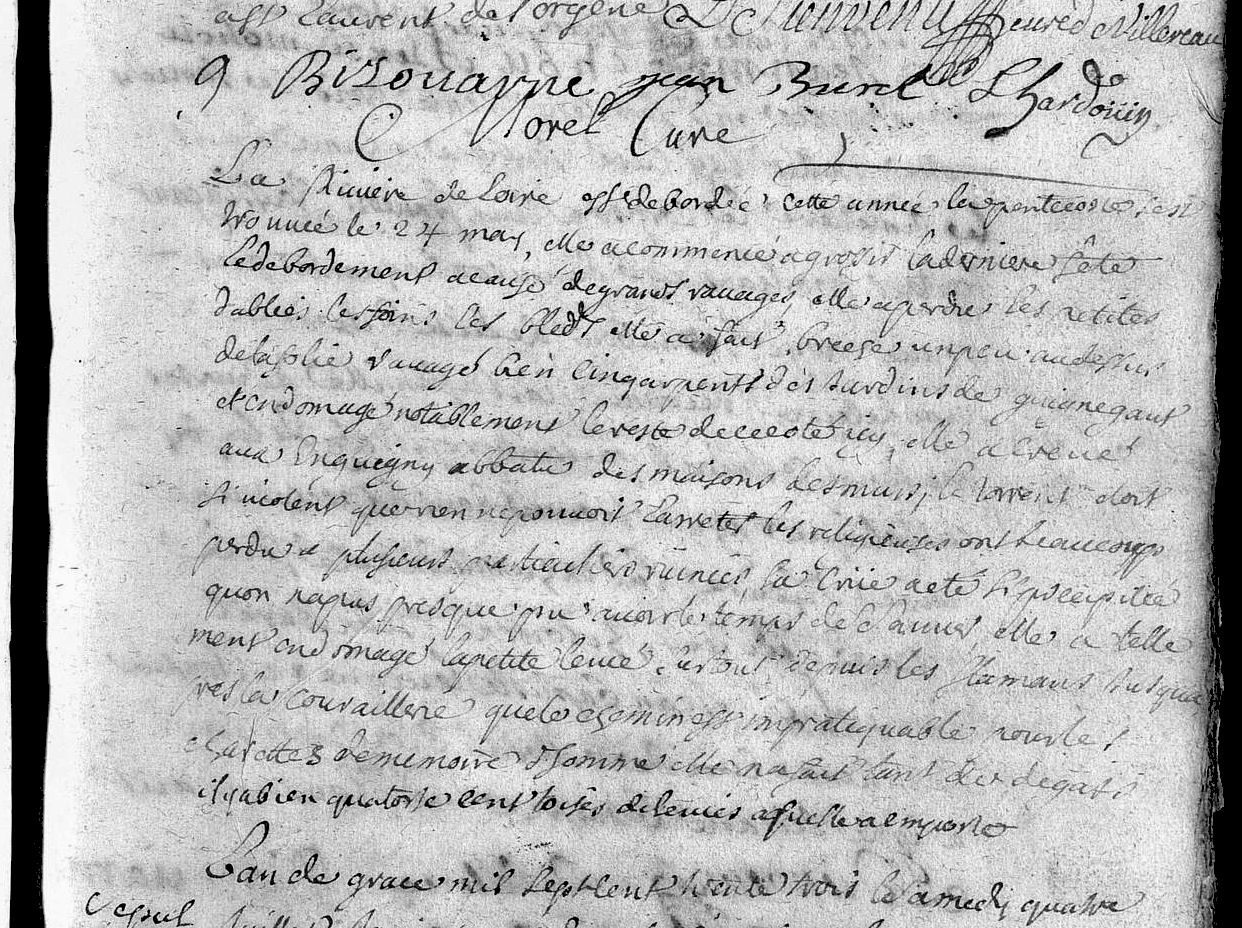 ass Laurent de Lorgene D Bienvenu curé d Villereau
9 Bizouarne jean Burel L hardoüin
C Morel Curé
La Riviere de Loire est debordeé cette anneé la pentecoste sest
trouveé le 24 may, elle a commencé a grossir la derniere fete
le debordement a causé de grands ravages, elle a perdu les petites
sables, les foins les bleds elle a fait breche un peu au dessus
de la folie ravagé bien cinq arpents des Jardins de guignegaut
et endomagé notablement le reste de ce coté icy, elle a crevé
aux abbatu des maisons des murs, le torrent etoit
si violent que rien ne pouvoit larreter les religieuses ont beaucoup
perdu et plusieurs particuliers ruinés, la Criie a eté si precipiteé
quon na pas presque pu avoir le temps de se sauver, elle a telle
ment endomagé la petite leveé surtout depuis les flamans jusqua
pres la Couraillerie que le chemin est impratiquable pour les
charettes de memoire dhomme elle na fait tant de degats
il y a bien quatorse cent toises de leveés a quelle a emporté
Lan de grace mil sept cent trente trois le samedy quatre
Sepul juillet